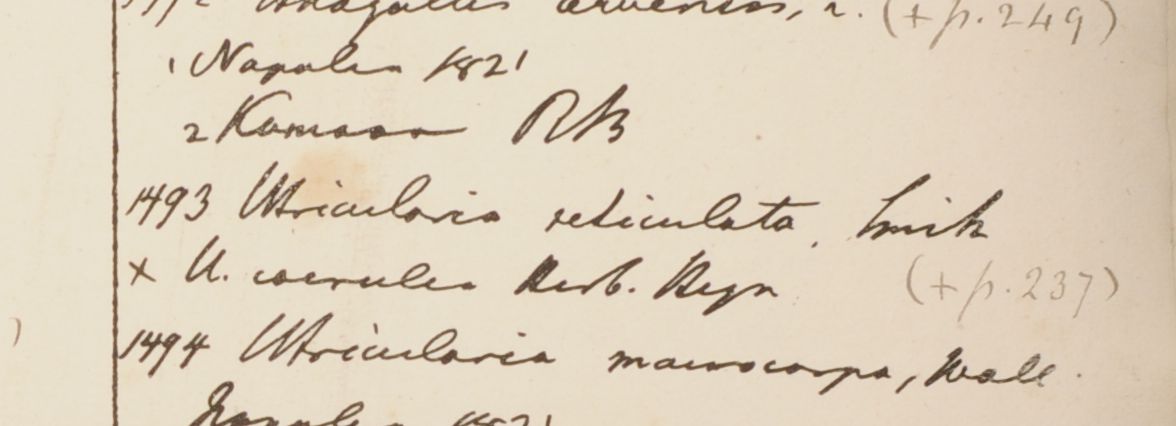 1492 Anagallis arvensis, 2. (+ p. 249)
1 Napalia 1821
2 Kamaon RB
1493 Utricularia reticulata, Smith
+ U. coerulea Herb. Heyn (+ p. 237)
1494 Utricularia macrocarpa, Wall.
Napalia 1821